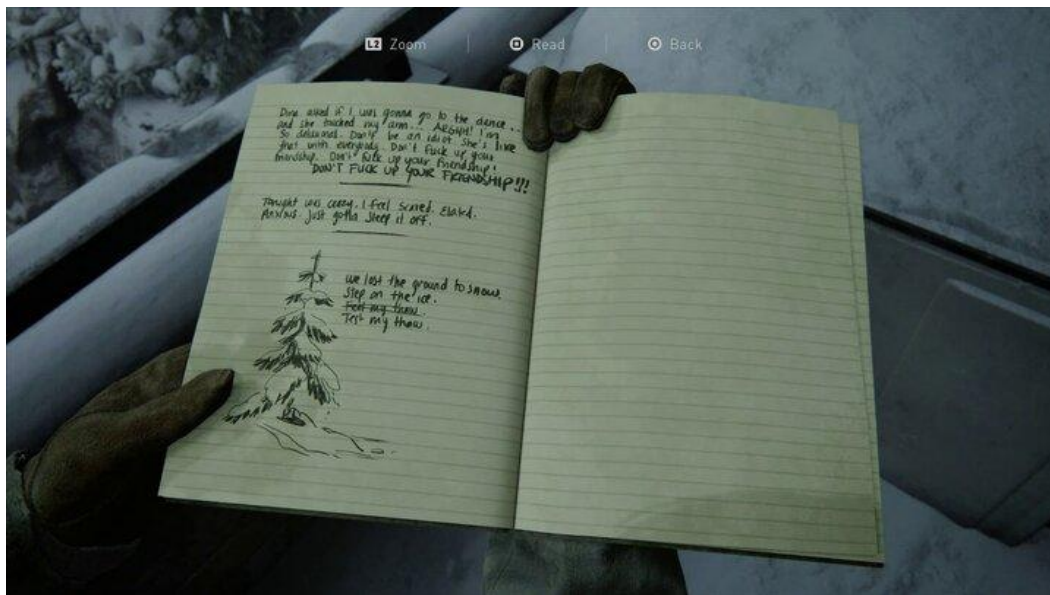 L2 Zoom
Read
Back
Dina asked if I was gonna go to the dance...
and she touched my arm... ARGHH! I'm
so delusional. Don't be an idiot she's like
that with everybody. Don't fuck up your
friendship. Don't fuck up your friendship!
DON'T FUCK UP YOUR FRIENDSHIP!!!
Tonight was crazy. I feel scared. Elated.
Anxious. Just gotta sleep it off.
we lost the ground to snow.
Step on the ice.
Feel my thaw.
Test my thaw.